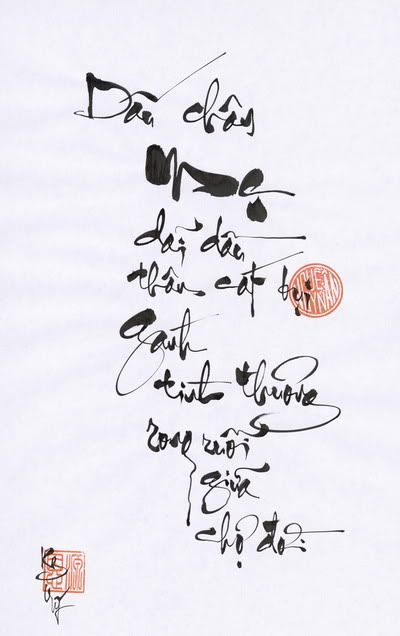 Dấu chân
dãi dầu
thân cát bụi
gánh
tình thương
rong ruổi
giữa
chợ đời.